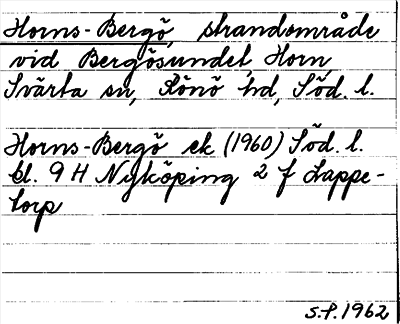 Horns-Bergö, strandområde
vid Bergösundet, Horn
Svärta sn, Rönö hd, Söd. l.
Horns-Bergö ek (1960) Söd. l.
bl. 9 H Nyköping 2 f Lappe-
torp
S.P. 1962